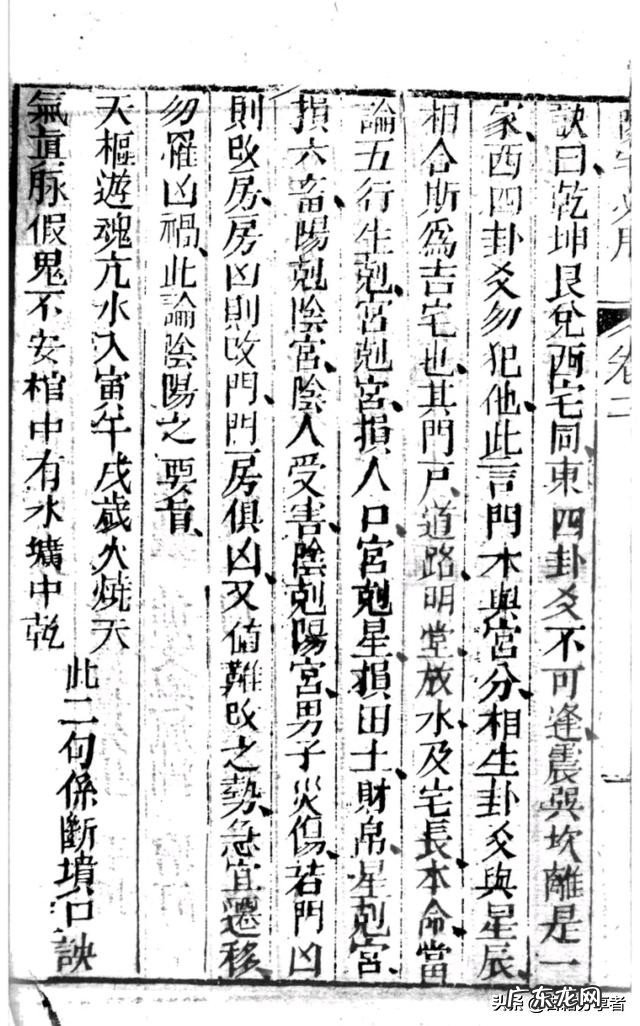 卷二
訣曰乾坤艮兌西宅同東四卦爻不可逢震巽坎離是一
家西四卦爻勿犯他此言門木與宮分相生卦爻與星辰
相合斯為吉宅也其門戶道路明堂放水及宅長本命當
論五行生剋宮剋宮損人口宮剋星損田土財帛星剋宮
損六畜陽剋陰宮陰人受害陰剋陽宮男子災傷若門凶
則改房房凶則改門門房俱凶又值難改之勢急宜遷移
勿罹凶禍此論陰陽之要旨
天樞遊魂亢水入寅午戌歲火燒天
氣眞脉假鬼不安棺中有水壙中乾
此二句係斷墳口訣
头条
享者
广东龙网